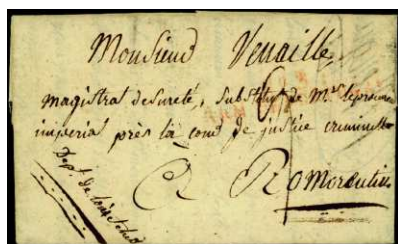 Monsieur Venaille,
magistrat de sureté, Substitut de Mr. le procureur
imperial près la cour de justice criminelle
A Romorentin
Dept. de Loir et cher